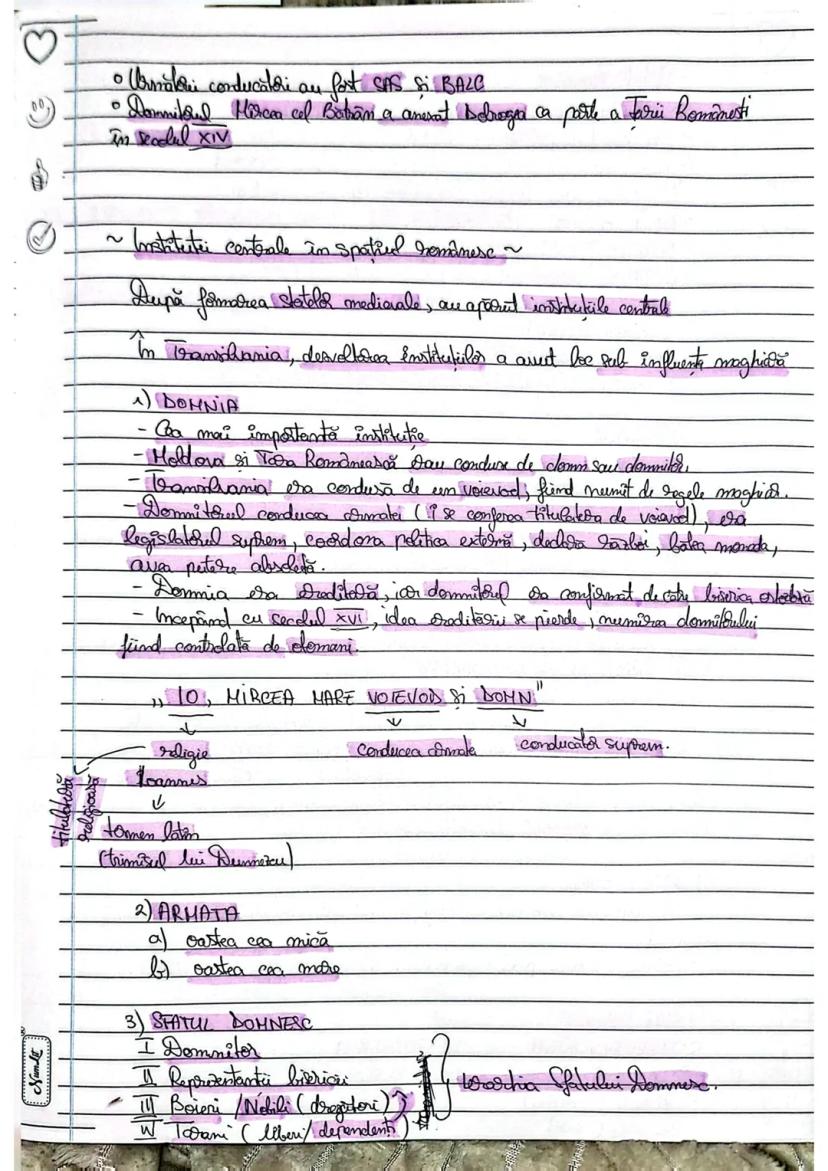 o Următorii conducători au fost SAS și BALC
o Domnitorul Mircea cel Bătrân a anexat Dobrogea ca parte a Țării Românești
în secolul XIV
~ Instituții centrale în spațiul românesc ~
După formarea statelor medievale, au apărut instituțiile centrale
În Transilvania, dezvoltarea instituțiilor a avut loc sub influență maghiară
1) DOMNIA
- Cea mai importantă instituție
- Moldova și Țara Românească erau conduse de domn sau domnitor.
- Transilvania era condusă de un voievod, fiind numit de regele maghiar.
- Domnitorul conducea armatei (i se conferea titulatura de voievod), era
legislatorul suprem, coordona politica externă, declara război, bătea monedă,
avea putere absolută.
- Domnia era ereditară, iar domnitorul era confirmat de către biserica ortodoxă
- Începând cu secolul XVI, ideea eredității se pierde, numirea domnitorului
fiind controlată de otomani.
„ IO, MIRCEA MARE VOIEVOD și DOMN"
religie conducea armate conducător suprem.
titulatură religioasă
Ioannes
termen latin
(trimisul lui Dumnezeu)
2) ARMATA
a) oastea cea mică
b) oastea cea mare
3) SFATUL DOMNESC
I Domnitor
II Reprezentanții bisericii
III Boieri / Nobili (dregători)
IV Țărani (liberi/dependenți)
Ierarhia Sfatului Domnesc.